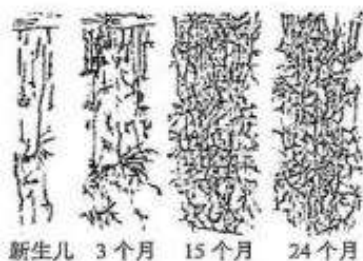 新生儿 3个月 15个月 24个月